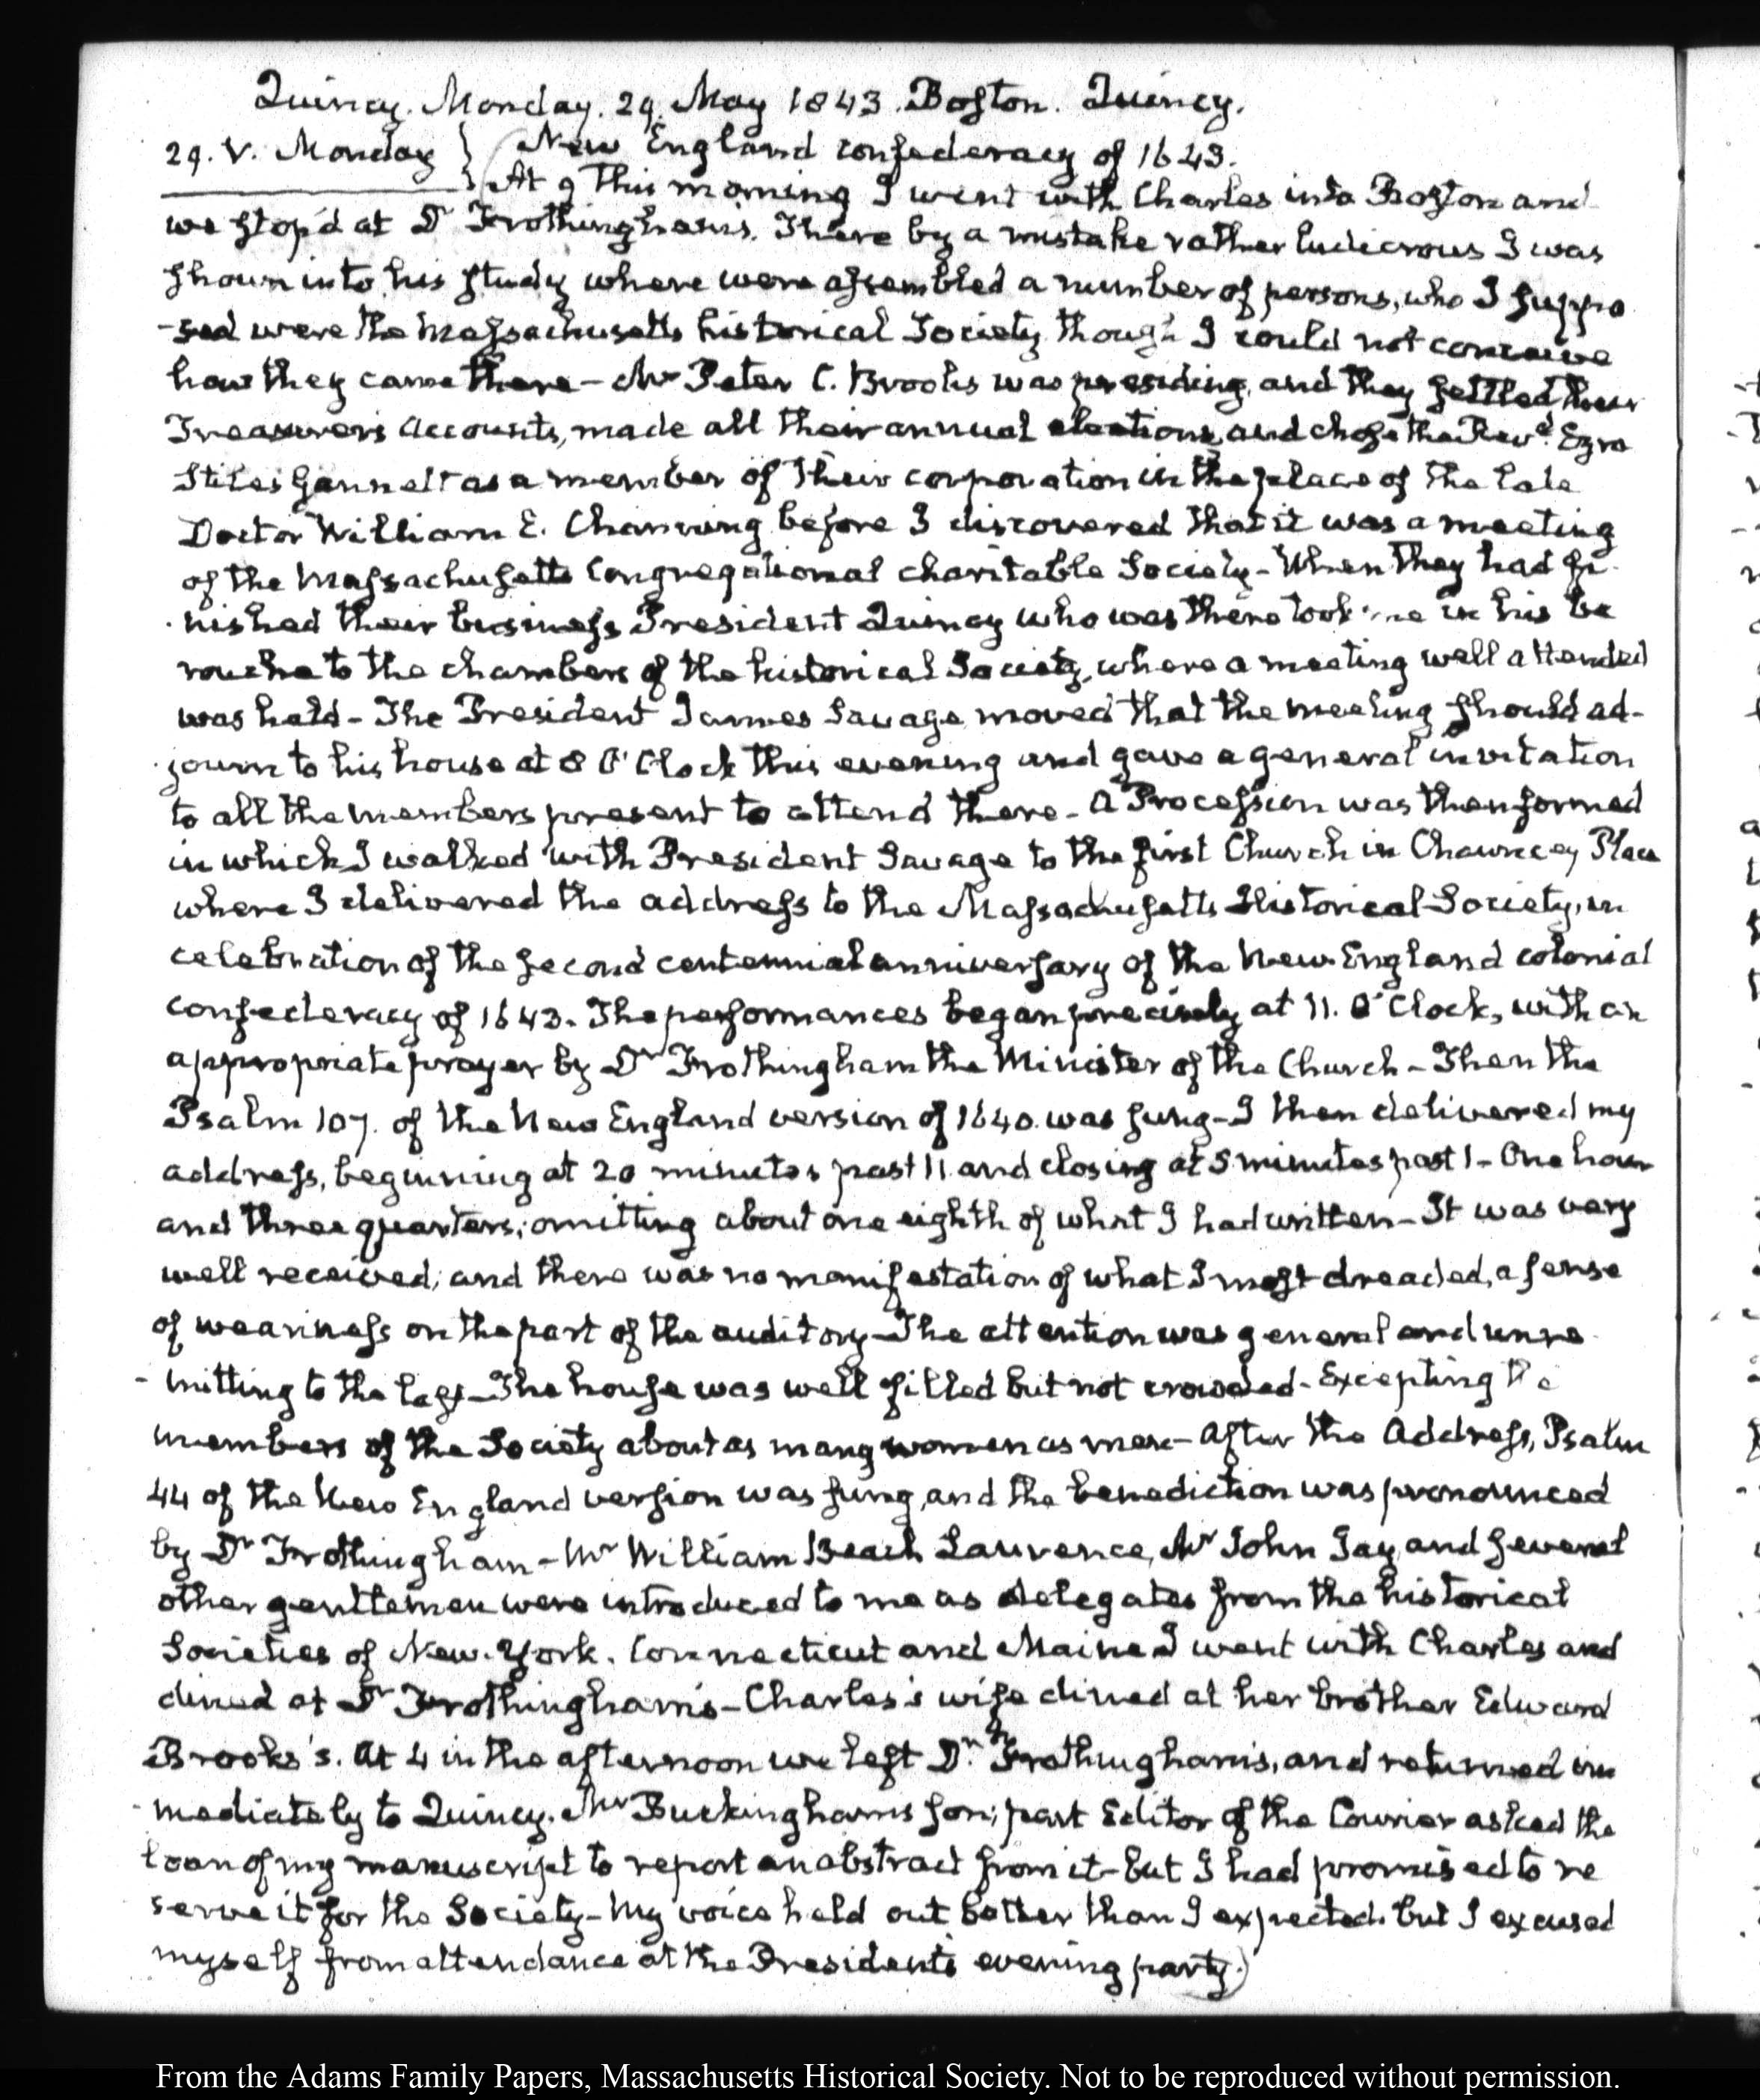 Quincy. Monday. 29. May 1843. Boston. Quincy.
29. V. Monday } (New England confederacy of 1643.
At 9 this morning I went with Charles into Boston and
we stop'd at Dr Frothingham's. There by a mistake rather ludicrous I was
shown into his study where were assembled a number of persons, who I suppo
-sed were the Massachusetts historical Society, though I could not conceive
how they came there - Mr Peter C. Brooks was presiding, and they settled their
Treasurer's Accounts, made all their annual elections, and chose the Revd. Ezra
Stiles Gannett as a member of their corporation in the place of the late
Doctor William E. Channing before I discovered that it was a meeting
of the Massachusetts Congregational charitable Society - When they had fi-
-nished their business President Quincy who was there took me in his ba
rouche to the chambers of the historical Society, where a meeting well attended
was held - The President James Savage moved that the meeting should ad-
-journ to his house at 8 O'Clock this evening and gave a general invitation
to all the members present to attend there - A Procession was then formed
in which I walked with President Savage to the first Church in Chauncey Place
where I delivered the address to the Massachusetts Historical Society, in
celebration of the second centennial anniversary of the New England colonial
confederacy of 1643. The performances began precisely at 11. O'Clock, with an
appropriate prayer by Dr Frothingham the Minister of the Church - Then the
Psalm 107. of the New England version of 1640. was sung - I then delivered my
address, beginning at 20 minutes past 11 and closing at 5 minutes past 1 - One hour
and three quarters; omitting about one eighth of what I had written - It was very
well received; and there was no manifestation of what I most dreaded, a sense
of weariness on the part of the auditory - The attention was general and unre-
-mitting to the last - The house was well filled but not crowded - Excepting the
members of the Society about as many women as men - After the Address, Psalm
44 of the New England version was sung, and the benediction was pronounced
by Dr Frothingham - Mr William Beach Lawrence, Mr John Jay, and several
other gentlemen were introduced to me as delegates from the historical
Societies of New-York, Connecticut and Maine I went with Charles and
dined at Dr Frothingham's - Charles's wife dined at her brother Edward
Brooks's. At 4 in the afternoon we left Dr. Frothingham's, and returned im
-mediately to Quincy. Mr Buckingham's son, part Editor of the Courier asked the
loan of my manuscript to report an abstract from it - but I had promised to re
serve it for the Society - My voice held out better than I expected. but I excused
myself from attendance at the President's evening party.)
From the Adams Family Papers, Massachusetts Historical Society. Not to be reproduced without permission.